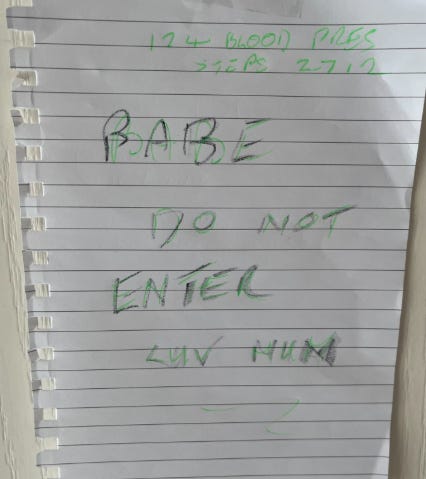 124 BLOOD PRES
STEPS 2712
BABE
DO NOT
ENTER
LUV MUM